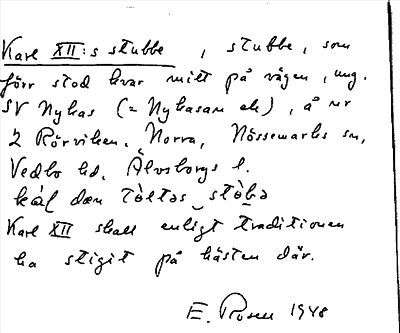 Karl XII:s stubbe, stubbe, som
förr stod kvar mitt på vägen, ung.
SV Nykas (= Nykasan ek), å nr
2 Rörviken. Norra, Nössemarks sn,
Vedbo hd, Älvsborgs l.
kál dæn tòltəs stòbə
Karl XII skall enligt traditionen
ha stigit på hästen där.
E. Rosen 1948